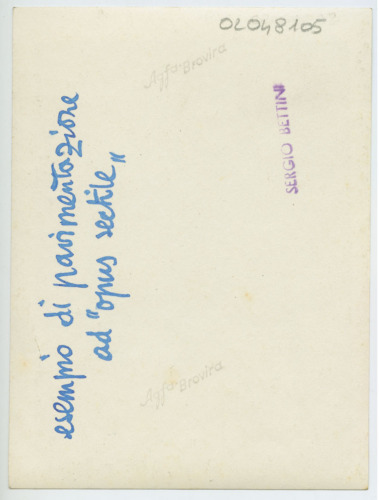 02048105
Agfa-Brovira
SERGIO BETTINI
esempio di pavimentazione
ad "opus sectile"
Agfa-Brovira